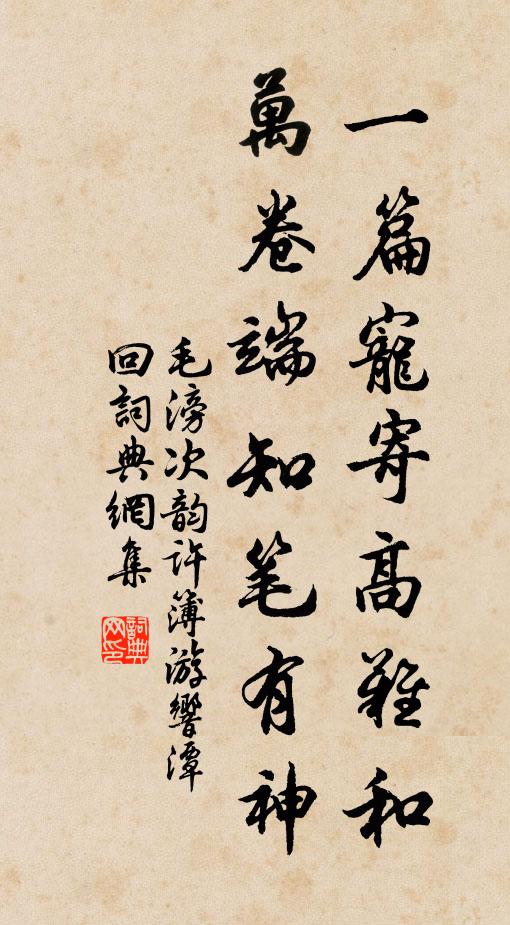 一篇寵寄高難和
萬卷端知笔有神
毛滂次韵許簿游響潭
回詞典網集
詞典網印